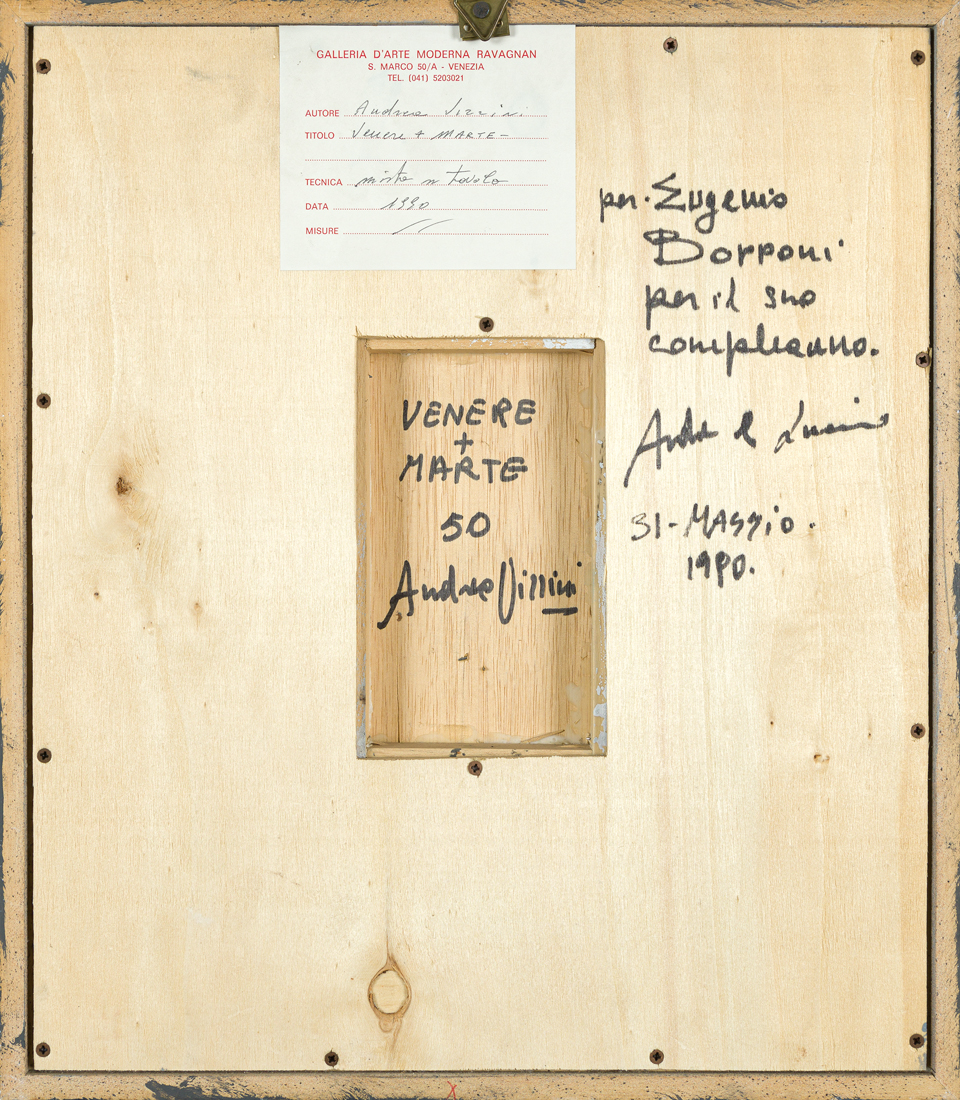 GALLERIA D'ARTE MODERNA RAVAGNAN
S. MARCO 50/A - VENEZIA
TEL. (041) 5203021
AUTORE Andrea Vizzini
TITOLO Venere + MARTE -
TECNICA mista su tavola
DATA 1990
MISURE //
per Eugenio
Borponi
per il suo
compleanno.
31-MAGGIO.
1990.
VENERE
+
MARTE
50
Andrea Vizzini